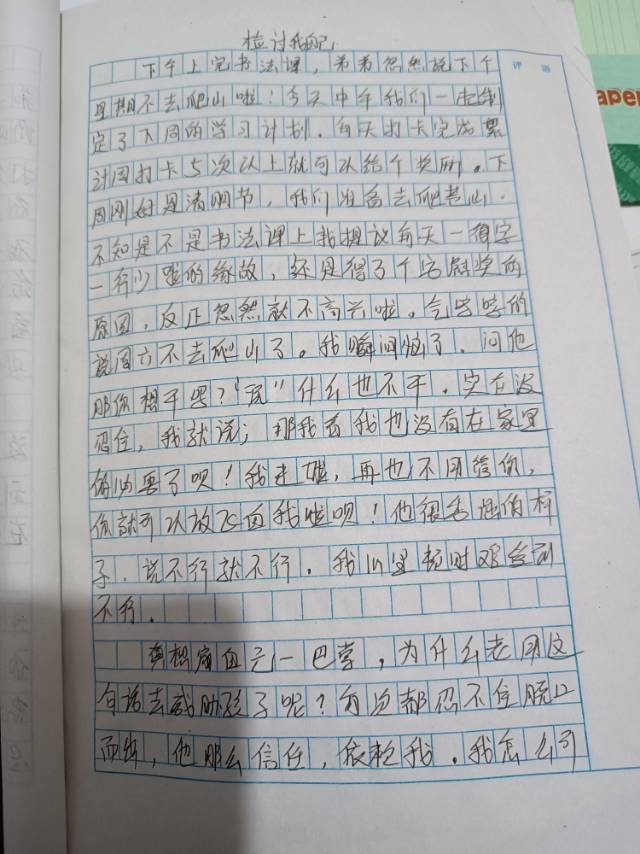 检讨我自己
评语
aper
下午上完书法课，弟弟忽然说下个
星期不去爬山啦！今天中午我们一起制
定了下周的学习计划．每天打卡完成累
计周打卡5次以上就可以给个奖励。下
周刚好是清明节，我们准备去爬山．
不知是不是书法课上我提议每天一得字
一有少 的缘故，还是得了个 奖的
原因，反正忽然就不高兴啦。气嘟嘟的
说周六不去爬山了。我瞬间恼了．问他
那你想干嘛？“玩”什么也不干．实在没
忍住，我就说；那我看我也没有在家里
的必要了呗！我走啦，再也不用管你，
你就可以放飞自我啦呗！他很委屈的样
子．说不行就不行。我心里顿时难受到
不行．
真想扇自己一巴掌，为什么老用这
句话去威胁孩子呢？每次都忍不住脱口
而出，他那么信任，依赖我．我怎么可